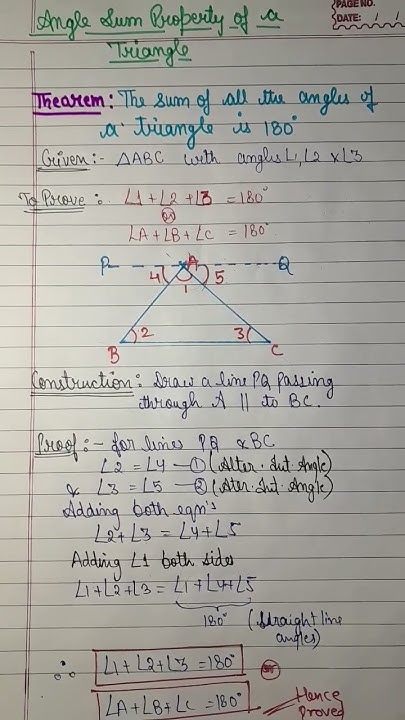 PAGE NO.
DATE: / /
Angle Sum Property of a
Triangle
Thearem: The sum of all the angles of
a triangle is 180°
Given:- △ABC with angles ∠1, ∠2 & ∠3
To Prove: ∠1+∠2+∠3 = 180°
or
∠A+∠B+∠C = 180°
P A Q
4 1 5
2 3
B C
Construction: Draw a line PQ passing
through A || to BC.
Proof:- for lines PQ & BC
∠2 = ∠4 — ① (Alter. Int Angle)
& ∠3 = ∠5 — ② (Ater. Int. Angle)
Adding both eqn's
∠2+∠3 = ∠4+∠5
Adding ∠1 both sides
∠1+∠2+∠3 = ∠1+∠4+∠5
180° (straight line
angles)
∴ ∠1+∠2+∠3 = 180° or
∠A+∠B+∠C = 180° Hence
Proved